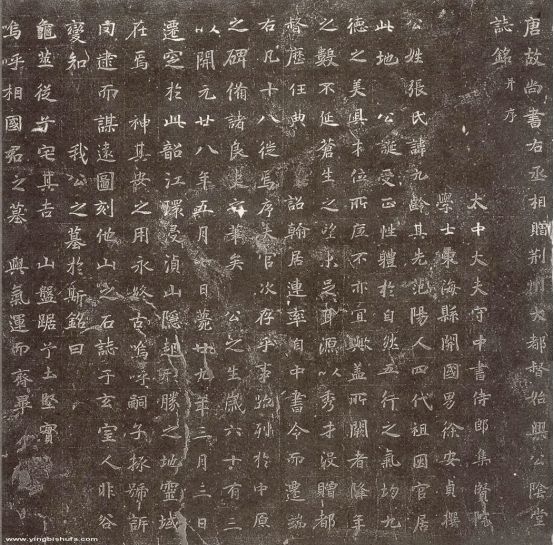 唐故尚書右丞相贈荊州大都督始興公陰堂
誌銘并序
太中大夫守中書侍郎集賢院
學士東海縣開國男徐安貞撰
公姓張氏諱九齡其先范陽人四代祖因官居
此地 公誕受正性體於自然五行之氣均九
德之美具才位所底不亦宜歟蓋所闕者降年
之數不延蒼生之望未足耳源以秀才沒贈都
督歷任典 詔翰居連率自中書令而遷端
右凡十八徙焉序夫官次存乎事迹列於中原
之碑備諸良史之筆矣 公之生歲六十有三
以開元廿八年五月七日薨廿九年三月三日
遷窆於此韶江環浸湞山隱起形勝之地靈域
在焉 神其安之用永終古嗚呼嗣子拯號訴
罔逮而謀遠圖刻他山之石誌于玄室人非谷
變知 我公之墓於斯銘曰
龜筮從兮宅其吉 山盤踞兮土堅實
嗚呼相國君之墓 與氣運而齊畢
www.yingbishufa.com